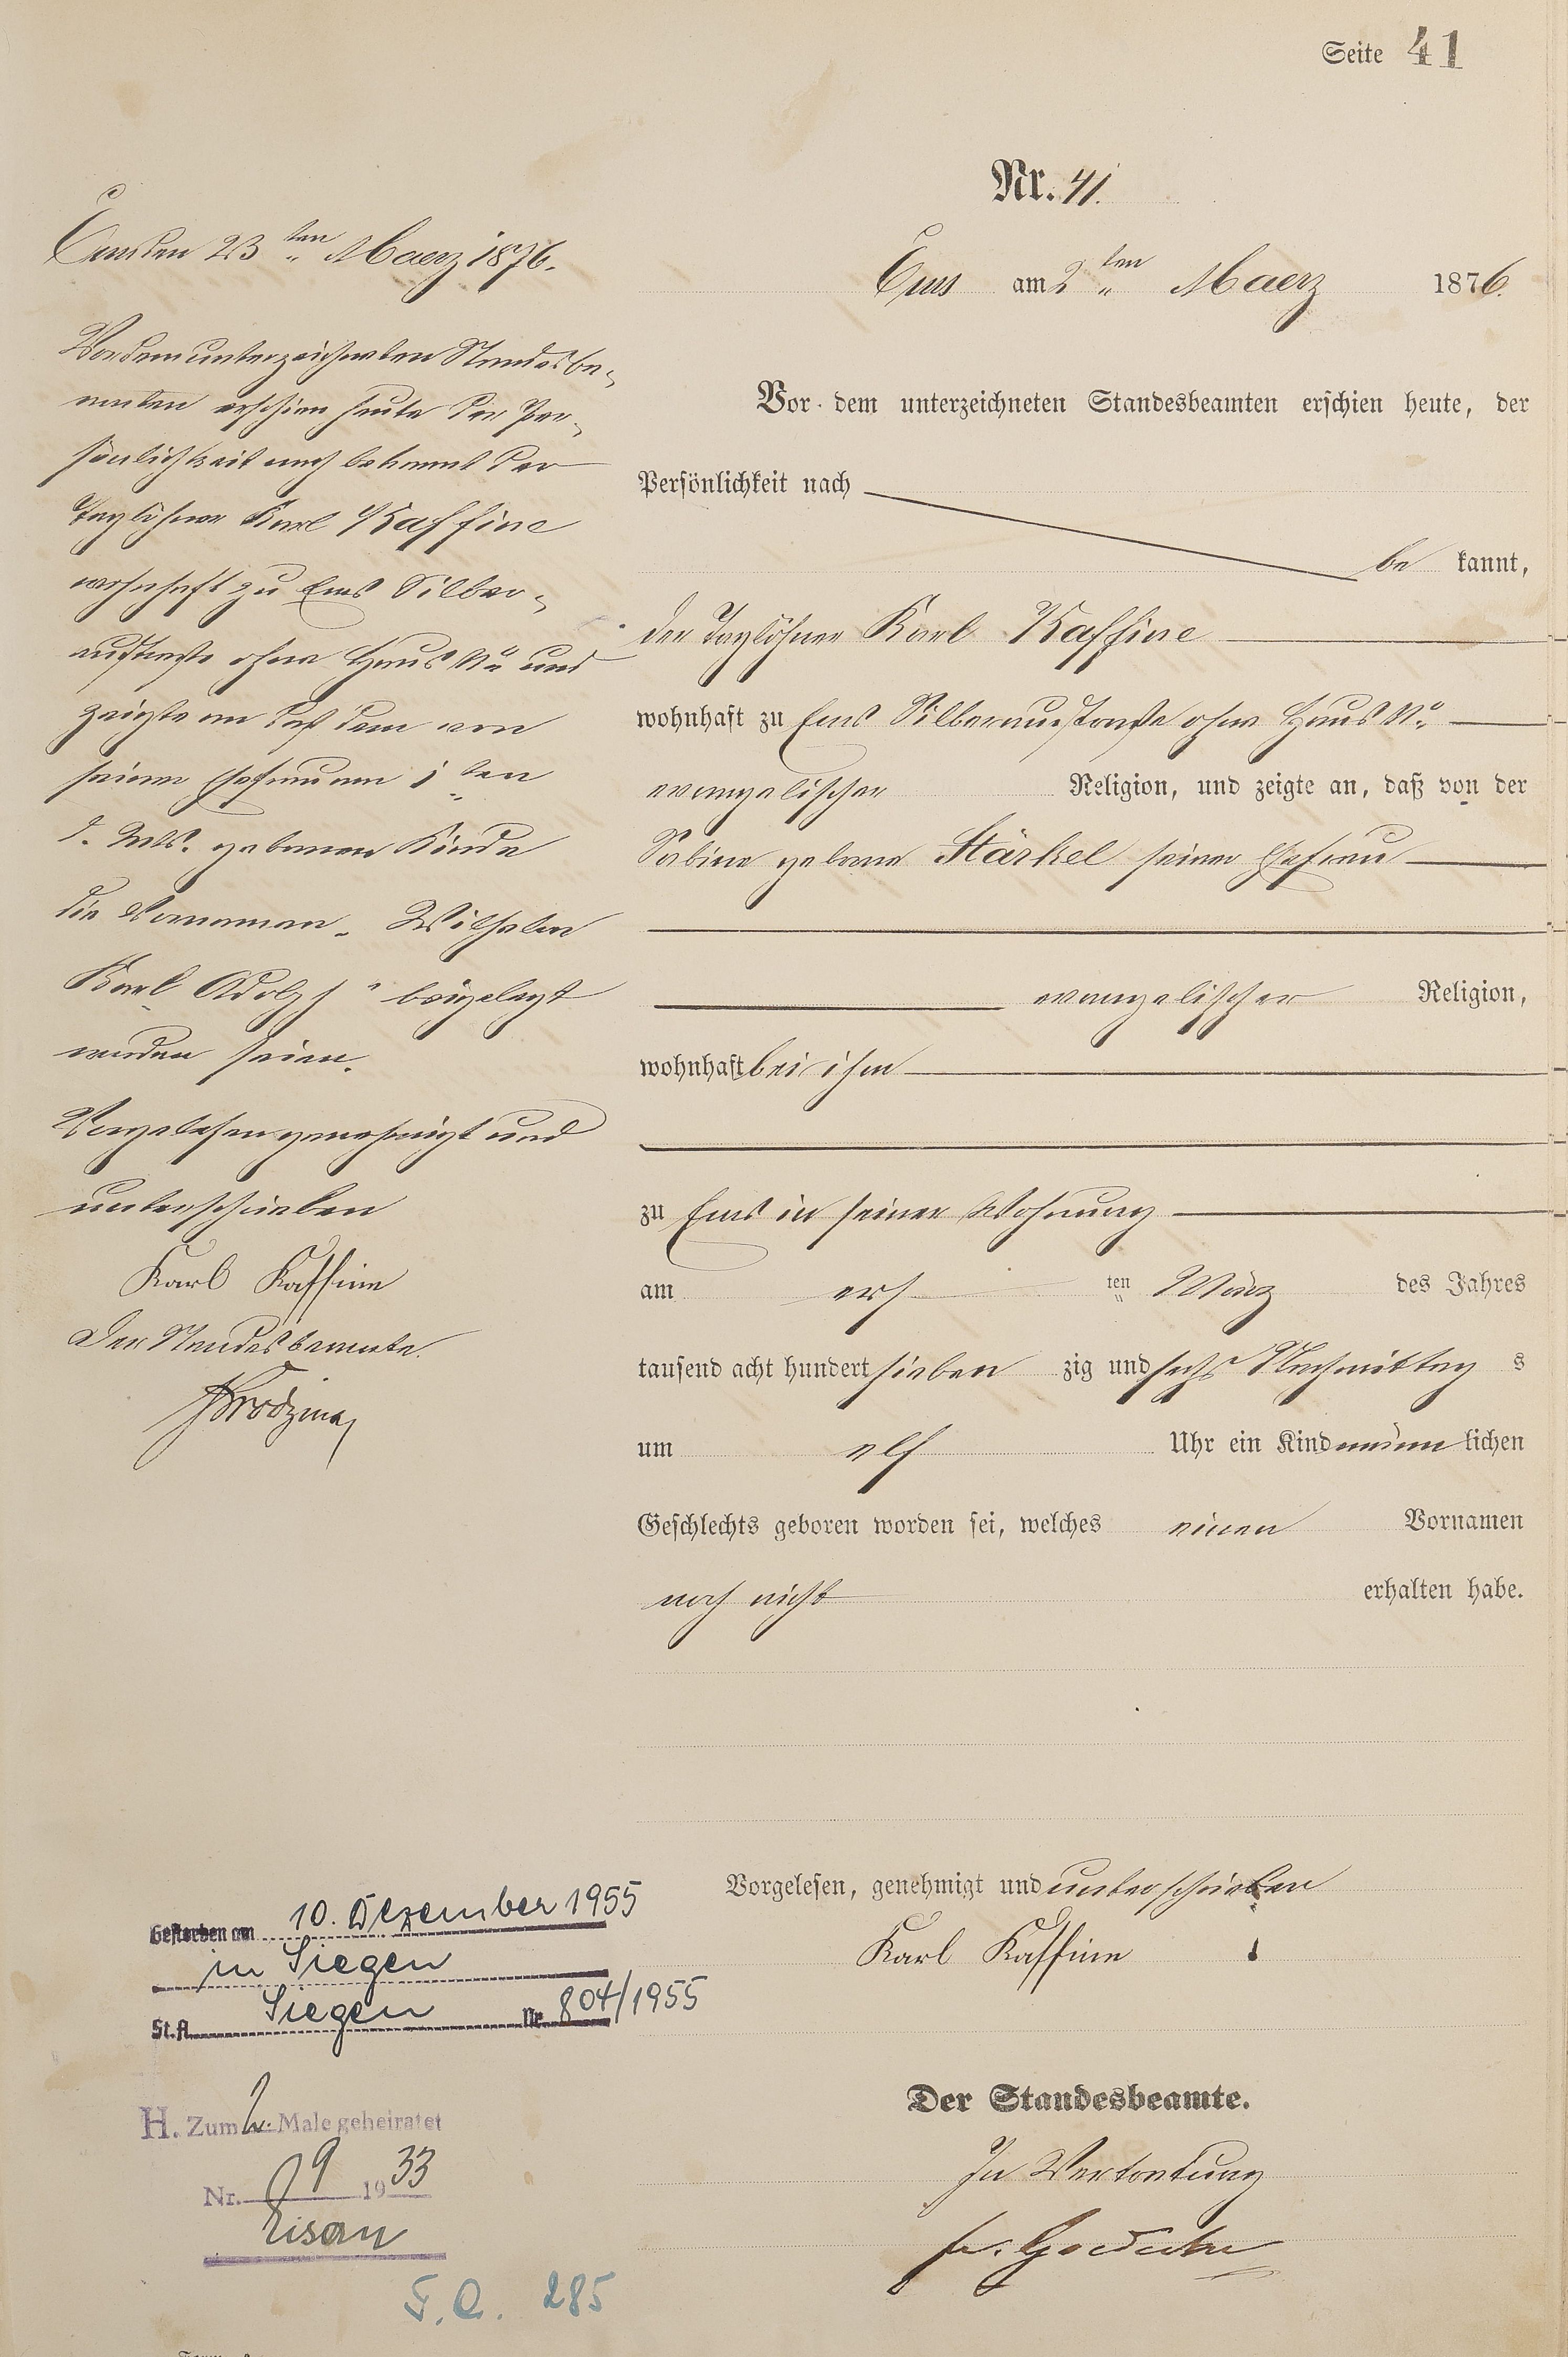 Seite 41
Nr. 41.
Ems am 2ten Maerz 1876.
Vor dem unterzeichneten Standesbeamten erschien heute, der
Persönlichkeit nach
be kannt,
der Taglöhner Karl Kaffine
wohnhaft zu Ems Silberaustraße ohne Haus No
evangelischer Religion, und zeigte an, daß von der
Sabine geborne Stärkel seiner Ehefrau
evangelischer Religion,
wohnhaft bei ihm
zu Ems in seiner Wohnung
am erst ten März des Jahres
tausend acht hundert sieben zig und sechs Nachmittag s
um elf Uhr ein Kind männ lichen
Geschlechts geboren worden sei, welches einen Vornamen
noch nicht erhalten habe.
Vorgelesen, genehmigt und unterschrieben
Karl Kaffine
Der Standesbeamte.
In Vertretung
Ems den 23ten Maerz 1876.
Vor dem unterzeichneten Standesbe-
amten erschien heute der Per-
sönlichkeit nach bekannt der
Taglöhner Karl Kaffine
wohnhaft zu Ems Silber-
austraße ohne Haus No und
zeigte an daß dem von
seiner Ehefrau am 1ten
d. Mts. geborenen Kinde
die Vornamen „Wilhelm
Karl Adolph“ beigelegt
worden seien.
Vorgelesen genehmigt und
unterschrieben
Karl Kaffine
Der Standesbeamte.
Gestorben am 10. Dezember 1955
in Siegen
St.A. Siegen Nr. 804/1955
H. Zum 2. Male geheiratet
Nr. 9 1933
Eisern
285